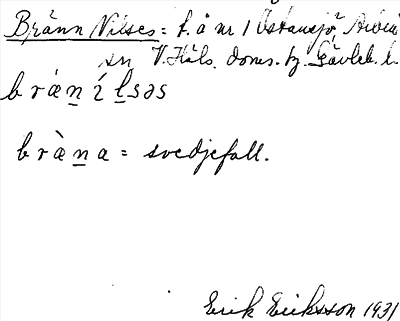 Bränn Nilses = t. å nr 1 Östansjö, Arbrå
sn V. Häls. doms. hz. Gävleb. l.
b r ǽ n í l s ə s
b r æ̀ n a = svedjefall.
Erik Eriksson 1931